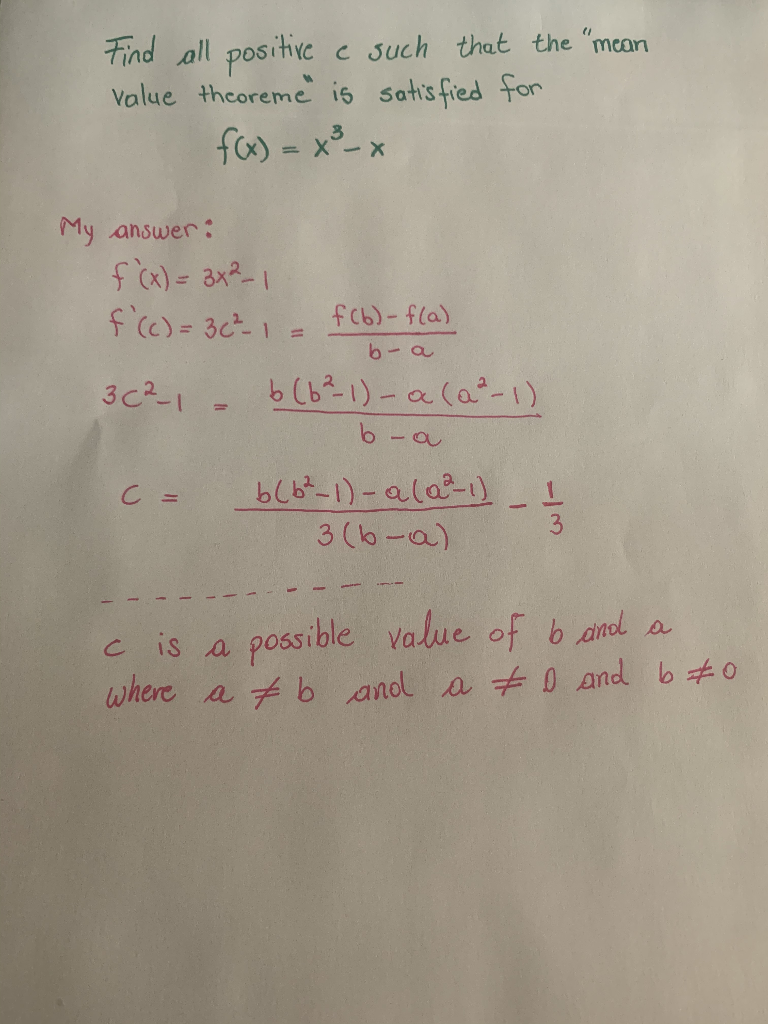 Find all positive c such that the "mean
value theoreme" is satisfied for
f(x) = x³ - x
My answer:
f`(x) = 3x² - 1
f`(c) = 3c² - 1 = (f(b) - f(a)) / (b - a)
3c² - 1 = (b(b² - 1) - a(a² - 1)) / (b - a)
c = (b(b² - 1) - a(a² - 1)) / (3(b - a)) - 1/3
c is a possible value of b and a
where a ≠ b and a ≠ 0 and b ≠ 0